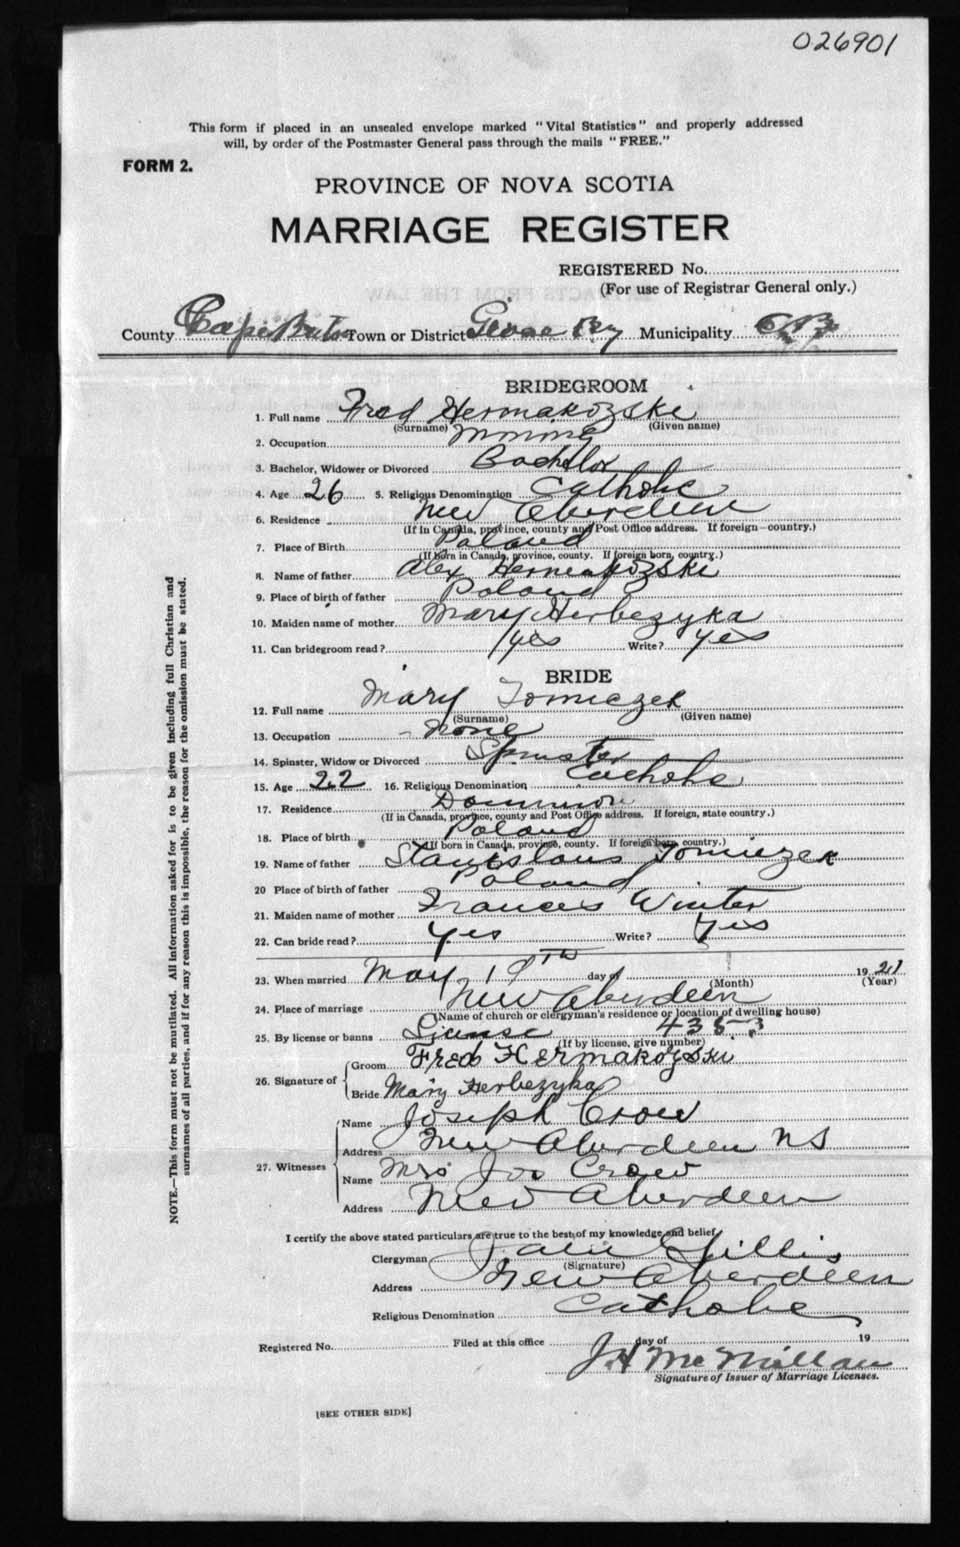 026901
This form if placed in an unsealed envelope marked "Vital Statistics" and properly addressed
will, by order of the Postmaster General pass through the mails "FREE."
FORM 2.
PROVINCE OF NOVA SCOTIA
MARRIAGE REGISTER
REGISTERED No.
(For use of Registrar General only.)
County Cape Breton Town or District Glace Bay Municipality C.B.
BRIDEGROOM
1. Full name Fred Hermakozski
(Surname) (Given name)
2. Occupation Mining
3. Bachelor, Widower or Divorced Bachelor
4. Age 26 5. Religious Denomination Catholic
6. Residence New Aberdeen
(If in Canada, province, county and Post Office address. If foreign—country.)
7. Place of Birth Poland
(If born in Canada, province, county. If foreign born, country.)
8. Name of father Alex Hermakozski
9. Place of birth of father Poland
10. Maiden name of mother Mary Herbezyka
11. Can bridegroom read? yes Write? yes
BRIDE
12. Full name Mary Tomiczek
(Surname) (Given name)
13. Occupation - None
14. Spinster, Widow or Divorced Spinster
15. Age 22 16. Religious Denomination Catholic
17. Residence Dominion
(If in Canada, province, county and Post Office address. If foreign, state country.)
18. Place of birth Poland
(If born in Canada, province, county. If foreign born, country.)
19. Name of father Stanislaus Tomiczek
20 Place of birth of father Poland
21. Maiden name of mother Frances Winter
22. Can bride read? Yes Write? Yes
23. When married May 19th day of 1921
(Month) (Year)
24. Place of marriage New Aberdeen
(Name of church or clergyman's residence or location of dwelling house)
25. By license or banns License 4353
(If by license, give number)
26. Signature of
Groom Fred Hermakozski
Bride Mary Herbezyka
27. Witnesses
Name Joseph Crow
Address New Aberdeen NS
Name Mrs Jos Crow
Address New Aberdeen
I certify the above stated particulars are true to the best of my knowledge and belief
Clergyman Gillis
(Signature)
Address New Aberdeen
Religious Denomination Catholic
Registered No. Filed at this office day of 19
J H McMillan
Signature of Issuer of Marriage Licenses.
[SEE OTHER SIDE]
NOTE.—This form must not be mutilated. All information asked for is to be given including full Christian and
surnames of all parties, and if for any reason this is impossible, the reason for the omission must be stated.